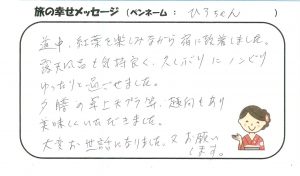 旅の幸せメッセージ (ペンネーム : ひろちゃん )
道中、紅葉を楽しみながら宿に到着しました。
露天風呂も気持良く、久しぶりにノンビリ
ゆったりと過ごせました。
夕膳の卓上天プラ等、趣向もあり
美味しくいただきました。
大変お世話になりました。又お願い
します。